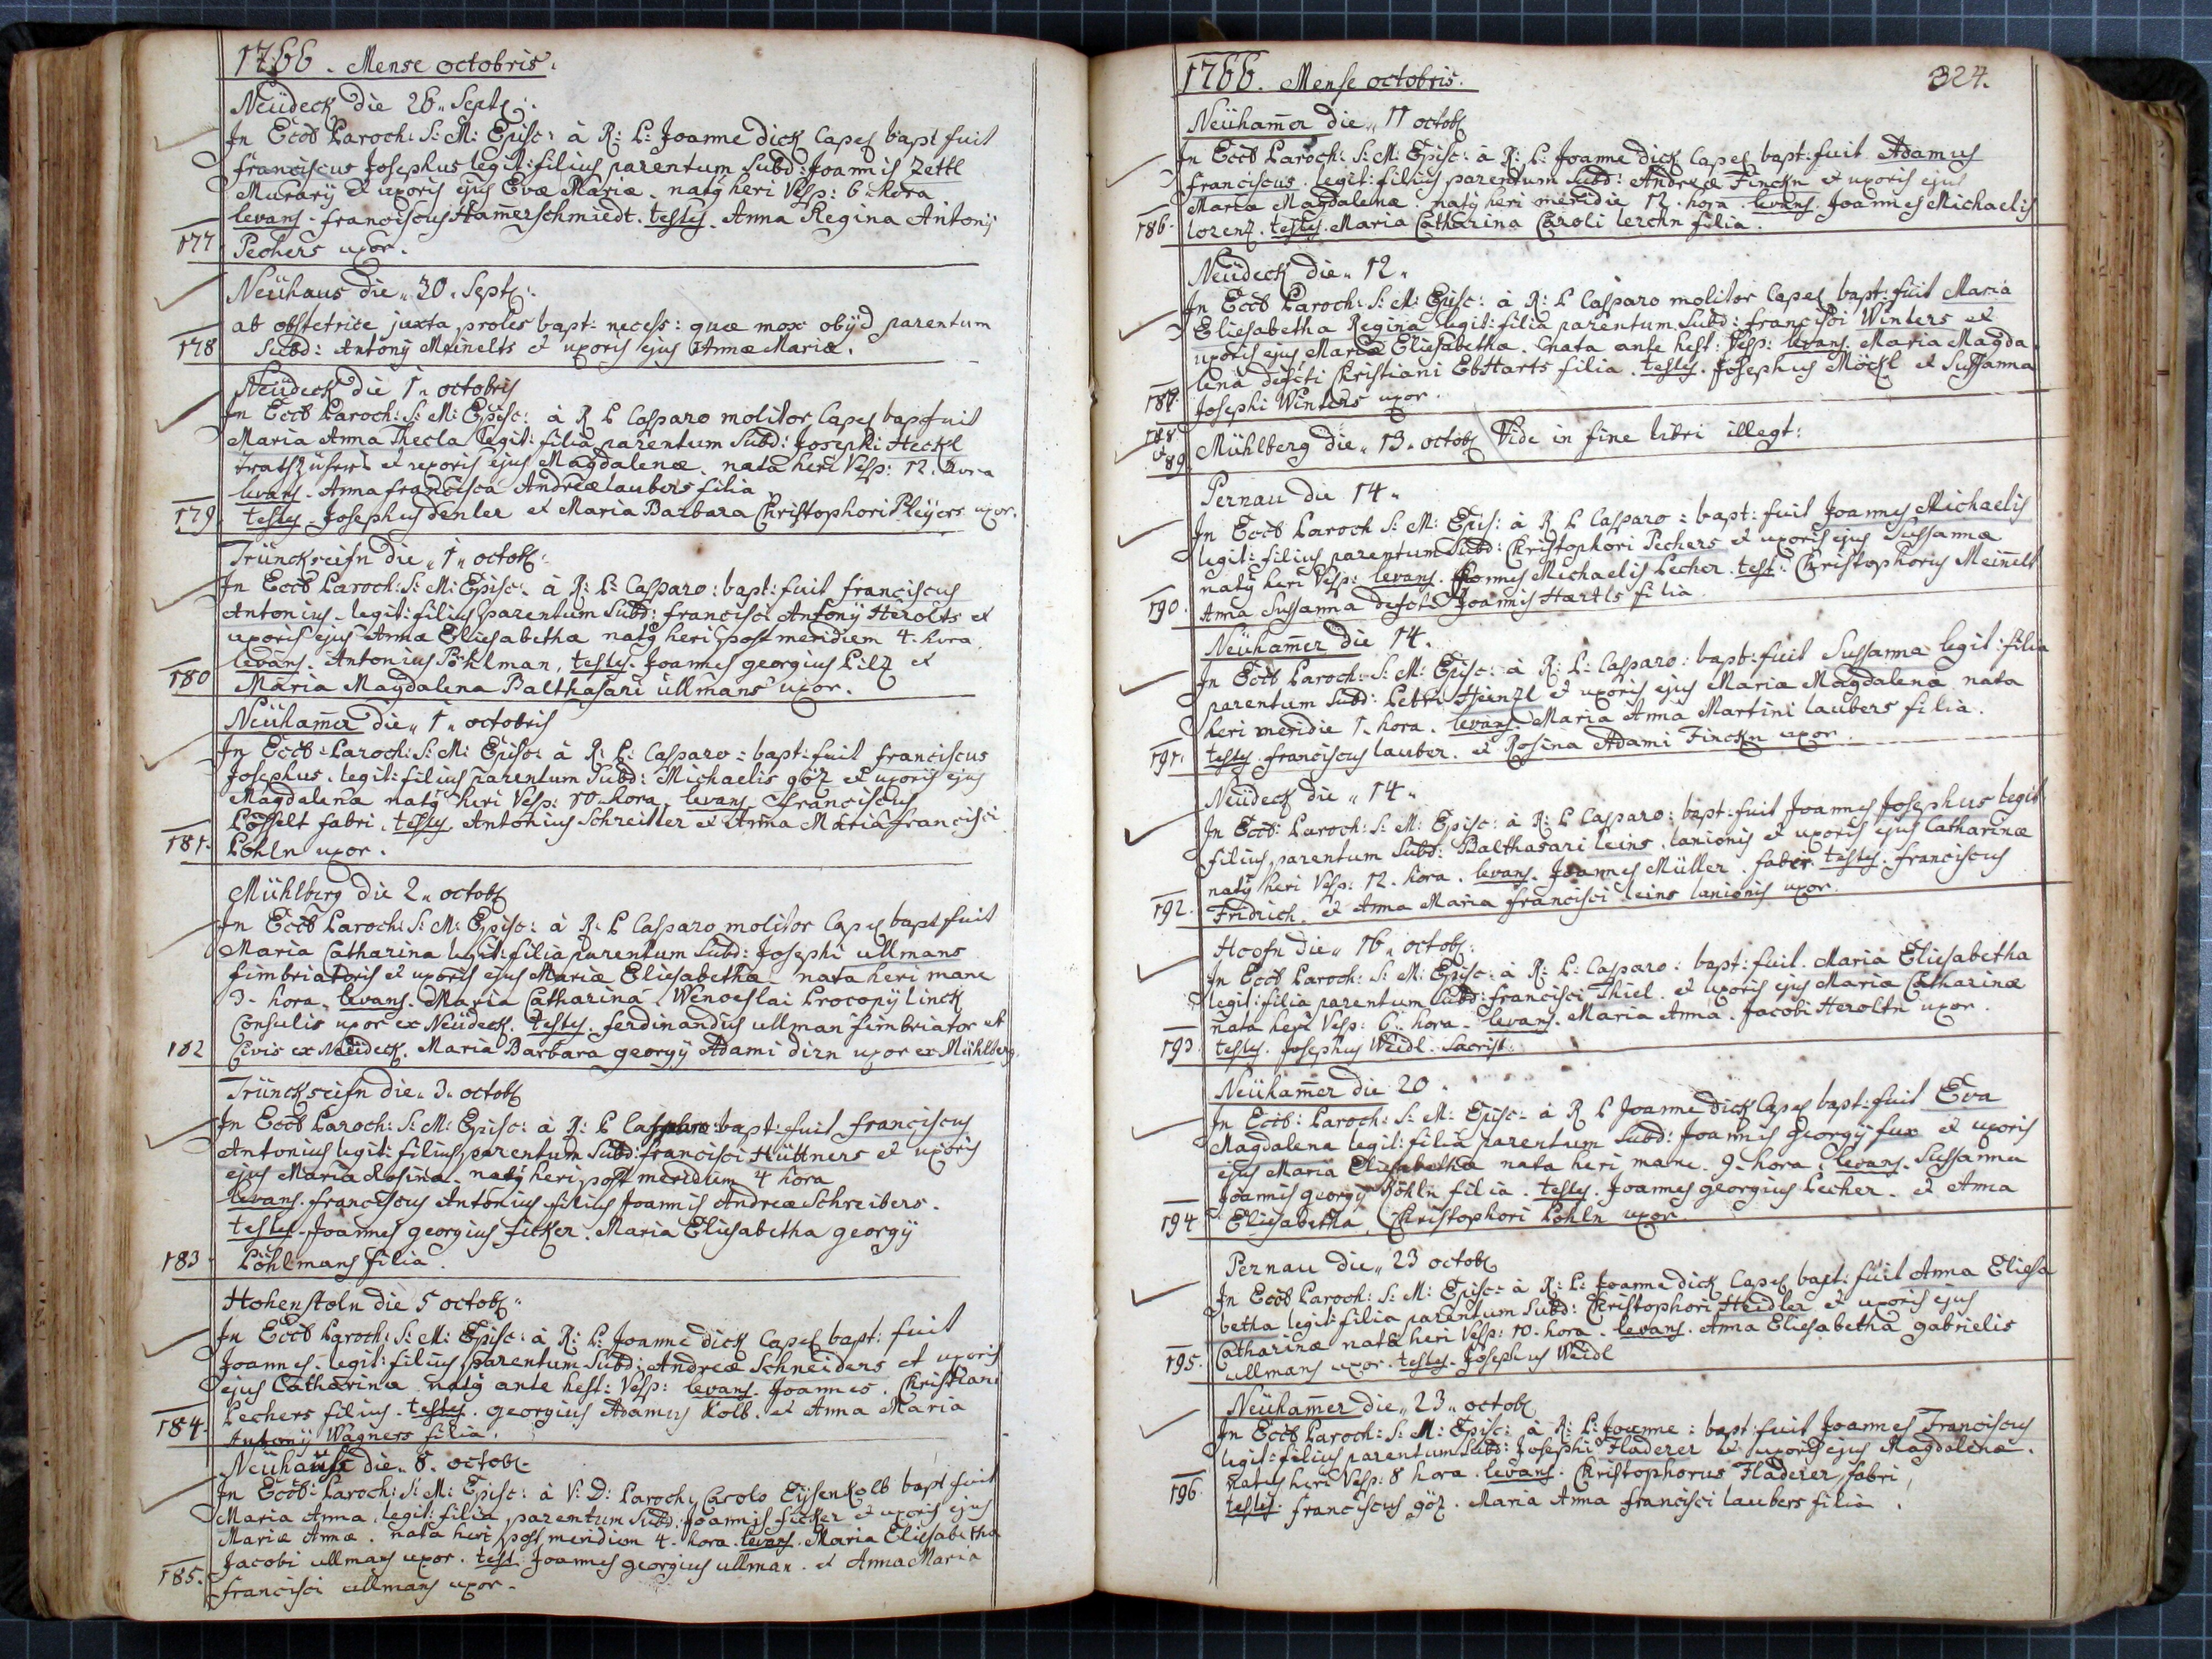 1766. Mense octobris.
Neüdeck die 26. Sept:
In Eccɫ Paroch: S: M: Episc: à R: P: Joanne dick Capeɫ bapt fuit
franciscus Josephus legit: filius parentum Subd: Joannis Zettl
Murarÿ et uxoris ejus Evæ Mariæ. natq heri Vesp: 6. hora
levans. franciscus Ham̅erschmiedt. testes. Anna Regina Antonÿ
177. Pechers uxor.
Neühaus die. 30. Sept:
ab obstetrice juxta proles bapt: necess: quæ mox obÿd parentum
178 Subd: Antonÿ Meinelts et uxoris ejus Annæ Mariæ.
Neüdeck die 1. octobris
In Eccɫ Paroch: S: M: Episc: à R P Casparo molitor Capeɫ bap fuit
Maria Anna Thecla legit: filia parentum Subd: Josephi Heckl
et uxoris ejus Magdalenæ. nata heri Vesp: 12. hora
levans. Anna francisca Andreæ laubers filia
179. testes. Josephus denler et Maria Barbara Christophori Pleÿers uxor.
Trünckseifn die. 1. octob:
In Eccɫ Paroch: S: M: Episc: à R: P: Casparo: bapt: fuit franciscus
Antonius. legit: filius parentum Subd: francisci Antonÿ Herolts et
uxoris ejus Annæ Eliesabethæ natq heri post meridiem 4. hora
levans. Antonius Pöhlman, testes. Joannes georgius Pilz et
180 Maria Magdalena Balthasari üllmans uxor.
Neüham̅er die. 1. octobris
In Eccɫ: Paroch: S: M: Episc: à R: P: Casparo: bapt: fuit franciscus
Josephus. legit: filius parentum Subd: Michaelis göz et uxoris ejus
Magdalenæ natq heri Vesp: 10 hora. levans. franciscus
Posselt fabri. testes. Antonius Schreitter et Anna Maria francisci
181. Pöhln uxor.
Mühlberg die 2. octob:
In Eccɫ Paroch: S: M: Episc: à R: P Casparo molitor Capeɫ bapt fuit
Maria Catharina legit: filia parentum Subd: Josephi ullmans
fimbriatoris et uxoris ejus Mariæ Eliesabethæ nata heri mane
3. hora. levans. Maria Catharina Wenceslai Procopÿ Linck
Consulis uxor ex Neüdeck. testes. ferdinandus ullman fimbriator et
182 Civis ex Neüdeck. Maria Barbara georgÿ Adami dirn uxor ex Mühlberg.
Trünckseifn die. 3. octob:
In Eccɫ Paroch: S: M: Episc: à R: P Casparo: bapt: fuit franciscus
Antonius legit: filius parentum Subd: francisci Hüttners et uxoris
ejus Maria Rosina. natq heri post meridiem 4 hora
levans. franciscus Antonius filius Joannis Andreæ Schreibers.
testes. Joannes georgius ficker. Maria Eliesabetha georgÿ
183. Pöhlmans filia.
Hohenstoln die 5 octob:
In Eccɫ Paroch: S: M: Episc: à R: P: Joanne dick Capeɫ bapt: fuit
Joannes. legit: filius parentum Subd: Andreæ Schneiders et uxoris
ejus Catharinæ natq ante hest: Vesp: levans. Joannes. Christiani
Pechers filius. testes. georgius Adamus Kolb. et Anna Maria
184. Antonÿ Wagners filia.
Neühauss die. 8. octob:
In Eccɫ: Paroch: S: M: Episc: à V: D: Parocho Carolo Eÿsenkolb bapt fuit
Maria Anna, legit: filia parentum Subd: Joannis ficker et uxoris ejus
Mariæ Annæ. nata heri post meridiem 4. hora. levans. Maria Eliesabetha
Jacobi ullmans uxor. test. Joannes georgius ullman. et Anna Maria
185. francisci ullmans uxor.
1766. Mense octobris. 324.
Neüham̅er die. 11 octob:
In Eccɫ Paroch: S: M: Episc: à R: P: Joanne dick Capeɫ bapt: fuit Adamus
franciscus. legit: filius parentum Subd: Andreæ Finckn et uxoris ejus
Mariæ Magdalenæ. natq heri meridie 12. hora. levans. Joannes Michaelis
186. lorenz. testes. Maria Catharina Caroli lerchn filia.
Neüdeck die. 12.
In Eccɫ Paroch: S: M: Episc: à R: P Casparo molitor Capeɫ bapt: fuit Maria
Eliesabetha Regina legit: filia parentum Subd: francisci Winters et
uxoris ejus Mariæ Eliesabethæ. nata ante hest: Vesp: levans. Maria Magda-
lena defcti Christiani EbHarts filia. testes. Josephus Möckl et Susanna
187. Josephi Winters uxor.
188. et 89. Mühlberg die. 13. octob: Vide in fine libri illegt:
Pernau die 14.
In Eccɫ Paroch S: M: Epis: à R P Casparo: bapt: fuit Joannes Michaelis
legit: filius parentum Subd: Christophori Pechers et uxoris ejus Susannæ
natq heri Vesp: levans. Joannes Michaelis Pecher. test: Christophorus Meinelt
190. Anna Susanna defcti Joannis Hartls filia.
Neüham̅er die 14.
In Eccɫ Paroch: S: M: Episc: à R: P: Casparo: bapt: fuit Susanna legit: filia
parentum Subd: Petri Heinzl et uxoris ejus Mariæ Magdalenæ nata
heri meridie 1. hora. levans. Maria Anna Martini laubers filia.
191. testes. franciscus lauber. et Rosina Adami Finckn uxor.
Neüdeck die. 14.
In Eccɫ: Paroch: S: M: Episc: à R: P Casparo: bapt: fuit Joannes Josephus legit
filius parentum Subd: Balthasari leins. lanionis et uxoris ejus Catharinæ
natq heri Vesp: 12. hora. levans. Joannes Müller. faber. testes. franciscus
192. Fridrich. et Anna Maria francisci leins lanionis uxor.
Hoofn die. 16. octob:
In Eccɫ Paroch: S: M: Episc: à R: P: Casparo: bapt: fuit. Maria Eliesabetha
legit: filia parentum Subd: francisci Thiel. et uxoris ejus Maria Catharinæ
nata heri Vesp: 6. hora. levans. Maria Anna. Jacobi Heroltn uxor.
193. testes. Josephus Weidl. Sacrist:
Neüham̅er die 20.
In Eccɫ: Paroch: S: M: Episc: à R P Joanne dick Capeɫ bapt: fuit Eva
Magdalena legit: filia parentum Subd: Joannis georgÿ fux et uxoris
ejus Maria Eliesabethæ nata heri mane. 9. hora. levans. Susanna
Joannis georgÿ Röhln filia. testes. Joannes georgius Pecher. et Anna
194 Eliesabetha. Christophori Pöhln uxor.
Pernau die. 23 octob:
In Eccɫ Paroch: S: M: Episc: à R: P: Joanne dick Capeɫ bapt: fuit Anna Eliesa
betha legit: filia parentum Subd: Christophori Heidler et uxoris ejus
Catharinæ nata heri Vesp: 10. hora. levans. Anna Eliesabetha gabrielis
195. ullmans uxor. testes. Josephus Weidl
Neüham̅er die. 23. octob:
In Eccɫ Paroch: S: M: Episc: à R: P: Joanne: bapt: fuit Joannes Franciscus
legit: filius parentum Subd: Josephi Fladerer et uxoris ejus Magdalenæ.
natus heri Vesp: 8 hora. levans. Christophorus Fladerer, fabri,
196 testes. franciscus göz. Maria Anna francisci laubers filia.